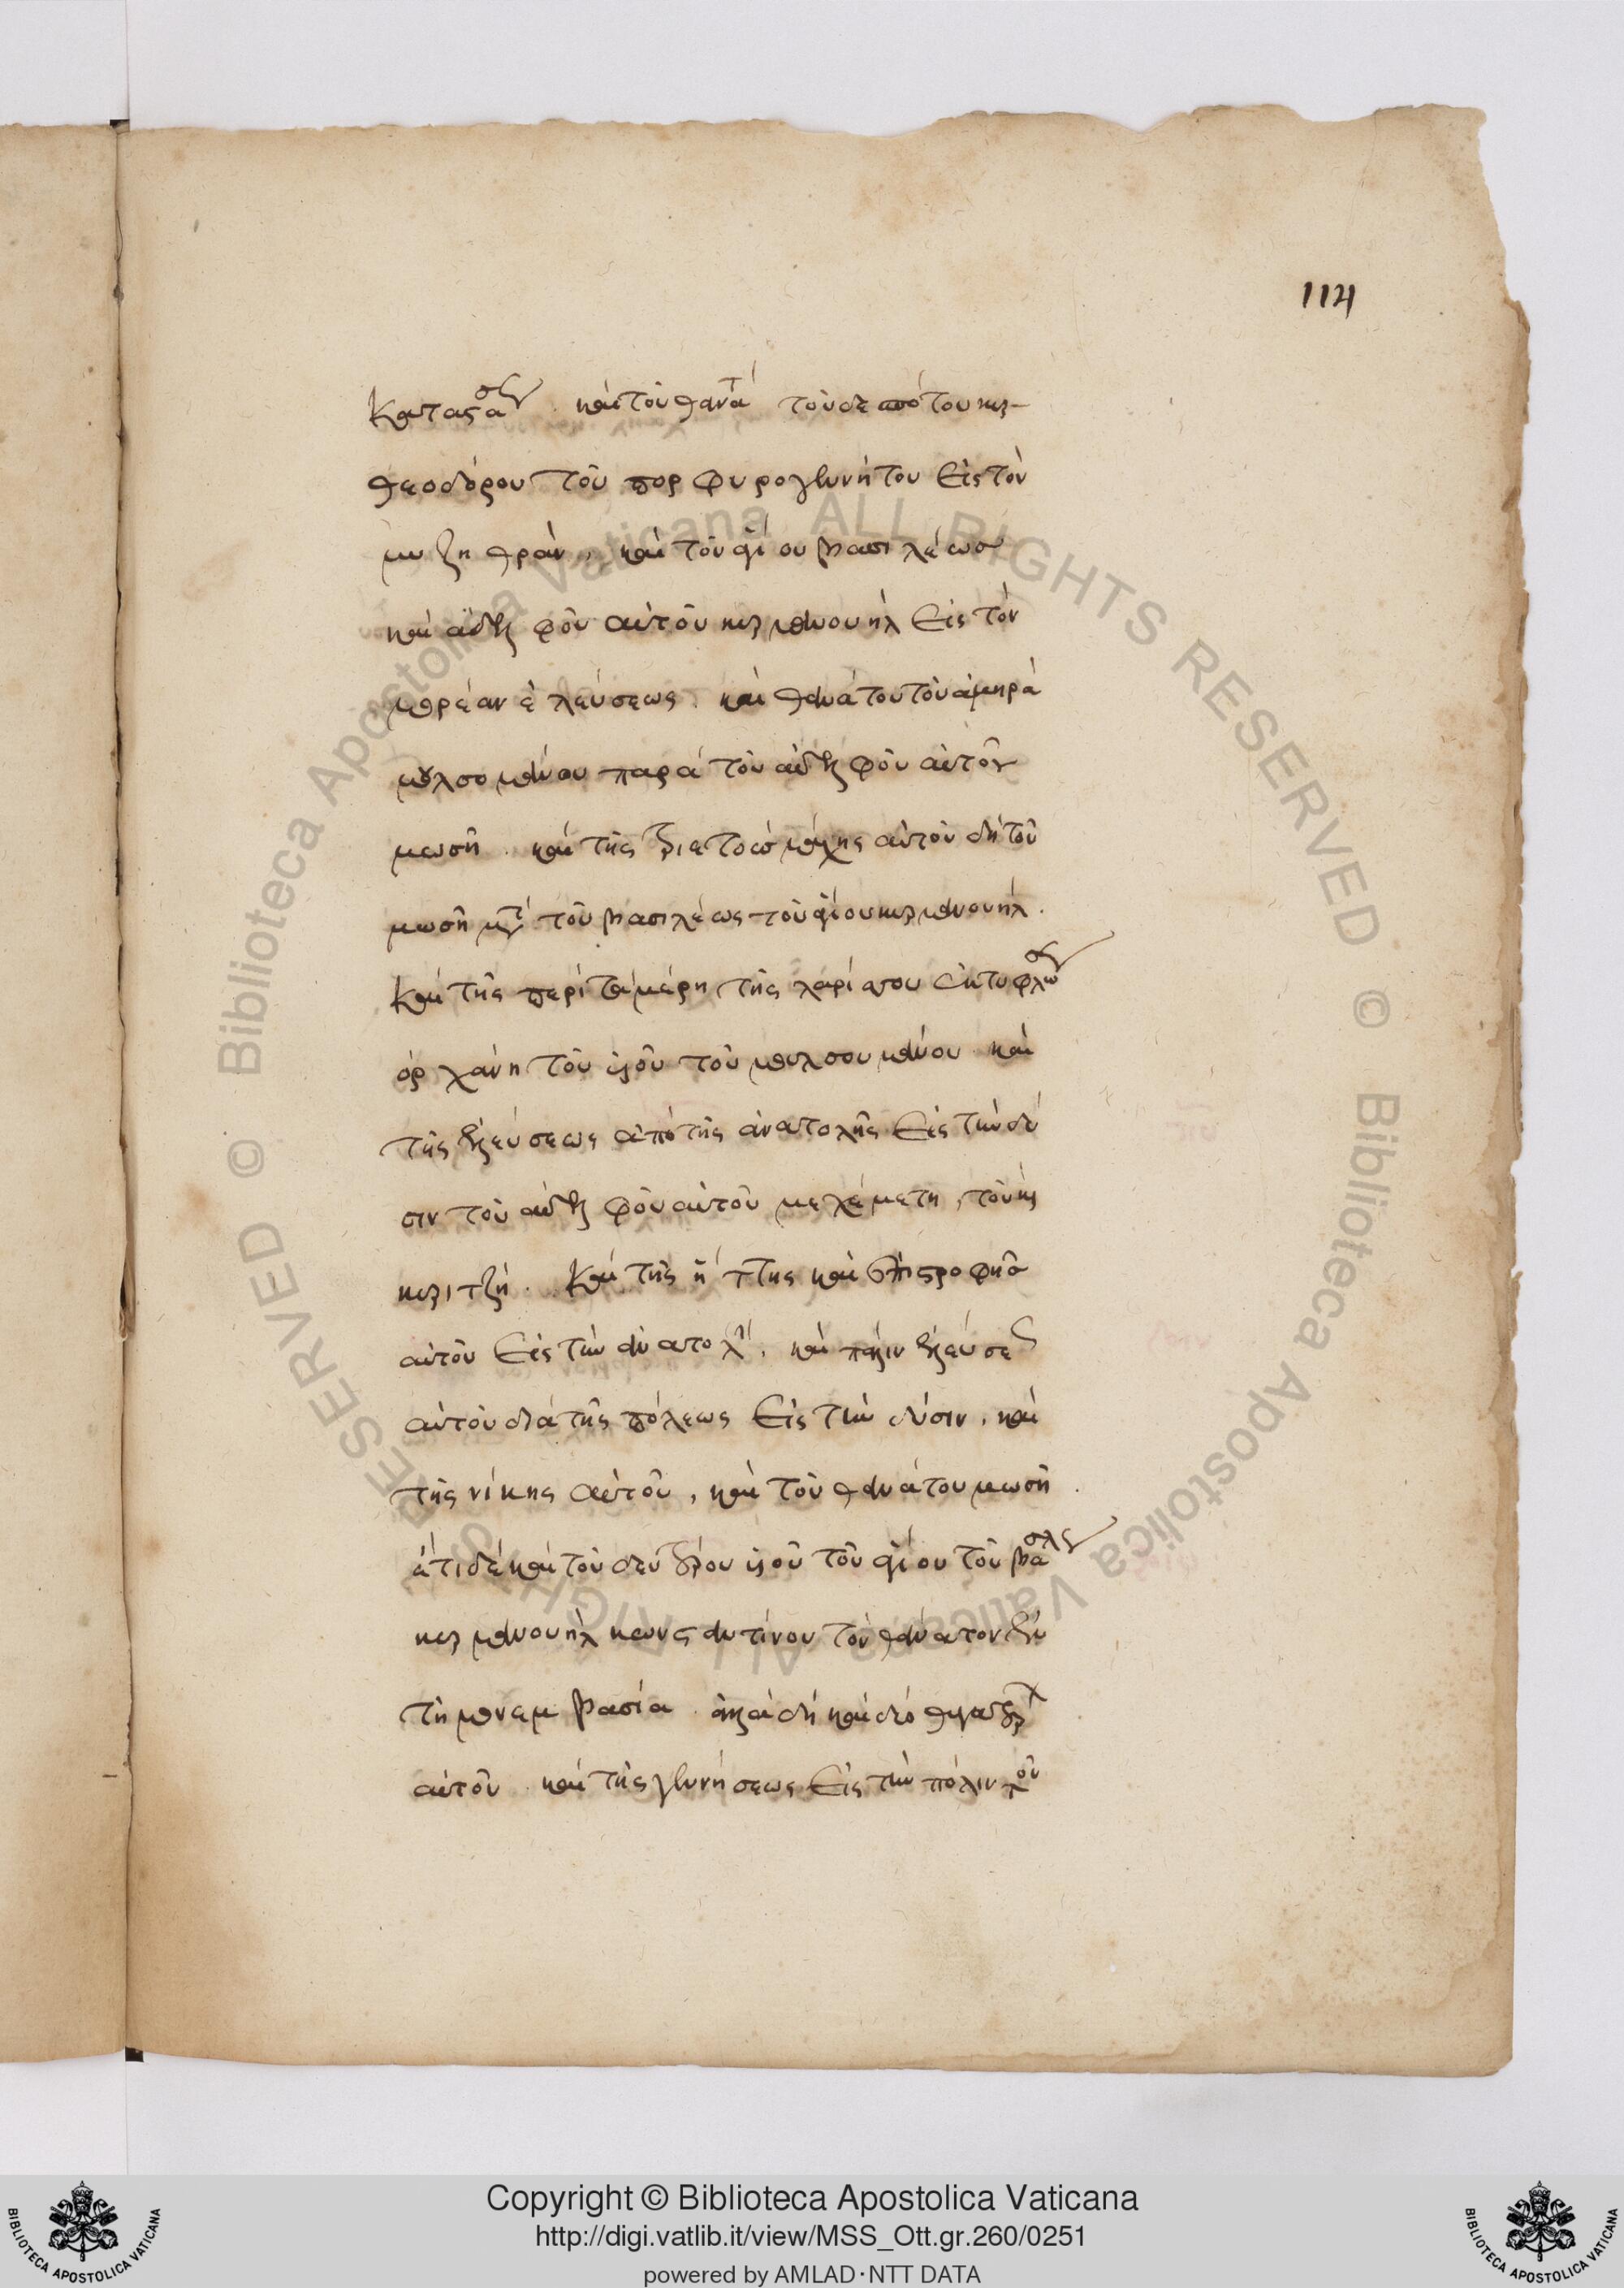 114
καταστάσεως. καὶ τοῦ θανάτου τοῦ δεσπότου κυρ
θεοδώρου τοῦ πορφυρογεννήτου εἰς τὸν
μυζηθρὰν, καὶ τοῦ ἁγίου βασιλέως
καὶ ἀδελφοῦ αὐτοῦ κυρ μανουὴλ εἰς τὸν
μορέαν ἐλεύσεως. καὶ θανάτου τοῦ ἀμηρᾶ
μουλσουμάνου παρὰ τοῦ ἀδελφοῦ αὐτοῦ
μωσῆ. καὶ τῆς μάχης αὐτοῦ δὴ τοῦ
μωσῆ μετὰ τοῦ βασιλέως τοῦ ἁγίου κυρ μανουήλ.
Καὶ τῆς περὶ τὰ μέρη τῆς λαρίσσου ἐκτυφλώσεως
ὀρχάνη τοῦ υἱοῦ τοῦ μουλσουμάνου καὶ
τῆς ἐλεύσεως ἀπὸ τῆς ἀνατολῆς εἰς τὴν δύ
σιν τοῦ ἀδελφοῦ αὐτοῦ μεχέμετη, τοῦ κυ
κυριτζῆ. Καὶ τῆς ἥττης καὶ ἐπιστροφῆς
αὐτοῦ εἰς τὴν ἀνατολήν. καὶ πάλιν ἐλεύσεως
αὐτοῦ διὰ τῆς πόλεως εἰς τὴν δύσιν, καὶ
τῆς νίκης αὐτοῦ, καὶ τοῦ θανάτου μωσῆ.
ἔτι δὲ καὶ τοῦ δευτέρου υἱοῦ τοῦ ἁγίου τοῦ βασιλέως
κυρ μανουὴλ κωνσταντίνου τὸν θάνατον ἐν
τῇ μονεμβασία. ἀλλὰ δὴ καὶ δύο θυγατέρων
αὐτοῦ. καὶ τῆς γεννήσεως εἰς τὴν πόλιν
Copyright © Biblioteca Apostolica Vaticana
http://digi.vatlib.it/view/MSS_Ott.gr.260/0251
powered by AMLAD·NTT DATA
BIBLIOTECA APOSTOLICA VATICANA
BIBLIOTECA APOSTOLICA VATICANA
© Biblioteca Apostolica Vaticana ALL RIGHTS RESERVED
© Biblioteca Apostolica Vaticana ALL RIGHTS RESERVED